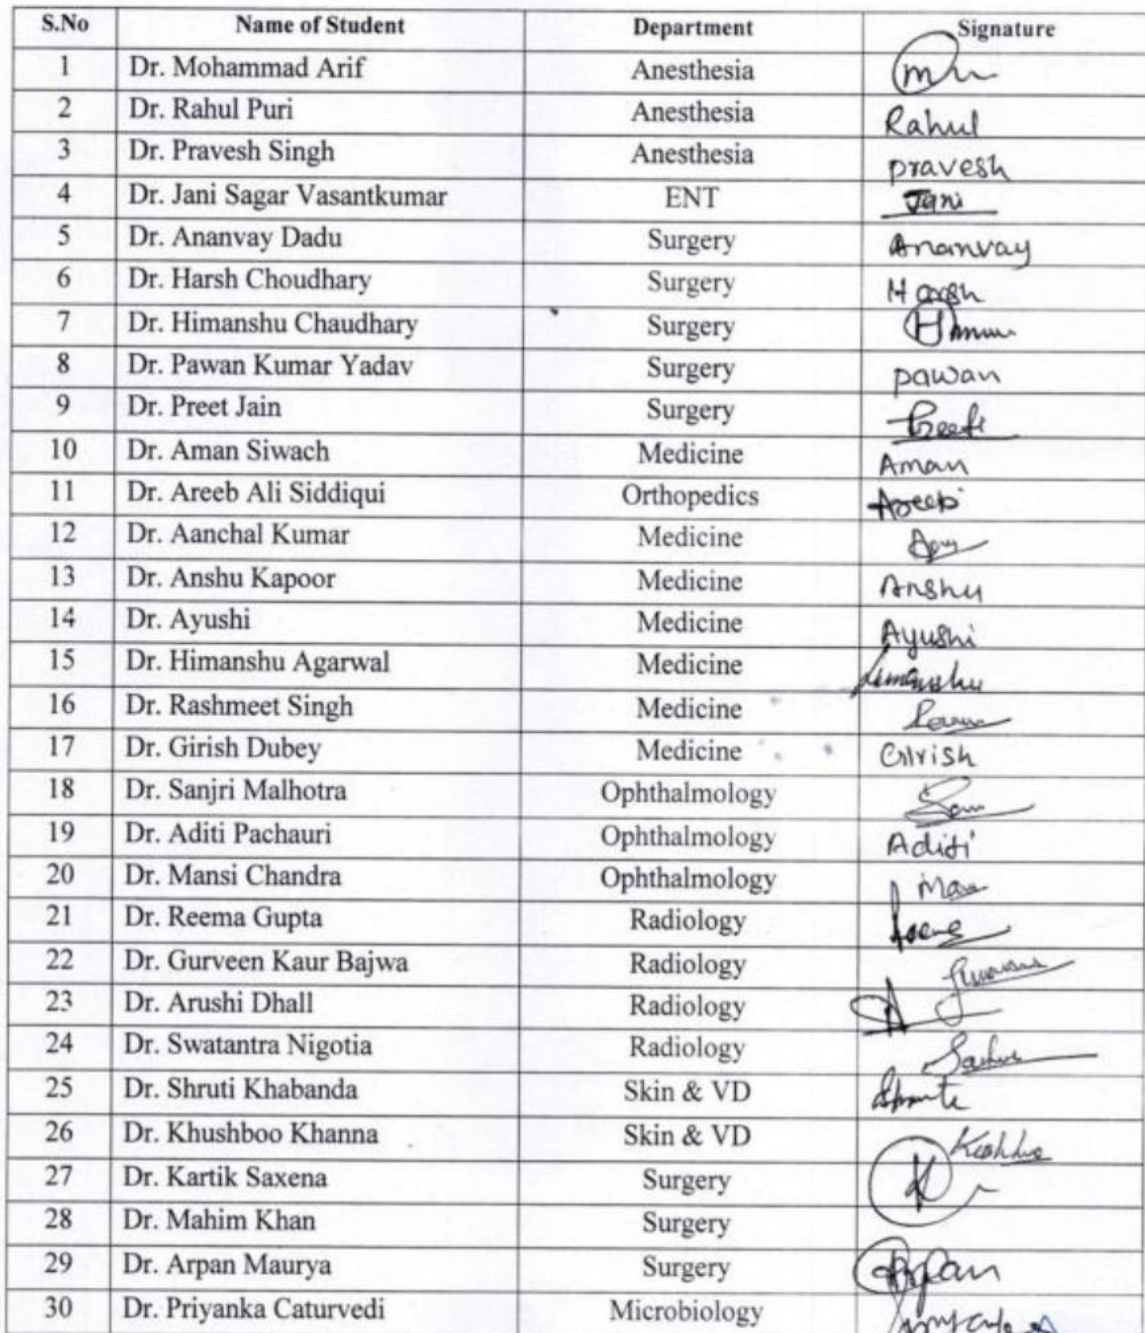 S.No Name of Student Department Signature
1 Dr. Mohammad Arif Anesthesia
2 Dr. Rahul Puri Anesthesia Rahul
3 Dr. Pravesh Singh Anesthesia pravesh
4 Dr. Jani Sagar Vasantkumar ENT Jani
5 Dr. Ananvay Dadu Surgery Ananvay
6 Dr. Harsh Choudhary Surgery Harsh
7 Dr. Himanshu Chaudhary Surgery
8 Dr. Pawan Kumar Yadav Surgery pawan
9 Dr. Preet Jain Surgery
10 Dr. Aman Siwach Medicine Aman
11 Dr. Areeb Ali Siddiqui Orthopedics Areeb
12 Dr. Aanchal Kumar Medicine
13 Dr. Anshu Kapoor Medicine Anshu
14 Dr. Ayushi Medicine Ayushi
15 Dr. Himanshu Agarwal Medicine Himanshu
16 Dr. Rashmeet Singh Medicine
17 Dr. Girish Dubey Medicine Girish
18 Dr. Sanjri Malhotra Ophthalmology
19 Dr. Aditi Pachauri Ophthalmology Aditi
20 Dr. Mansi Chandra Ophthalmology
21 Dr. Reema Gupta Radiology
22 Dr. Gurveen Kaur Bajwa Radiology
23 Dr. Arushi Dhall Radiology
24 Dr. Swatantra Nigotia Radiology
25 Dr. Shruti Khabanda Skin & VD
26 Dr. Khushboo Khanna Skin & VD
27 Dr. Kartik Saxena Surgery
28 Dr. Mahim Khan Surgery
29 Dr. Arpan Maurya Surgery Arpan
30 Dr. Priyanka Caturvedi Microbiology